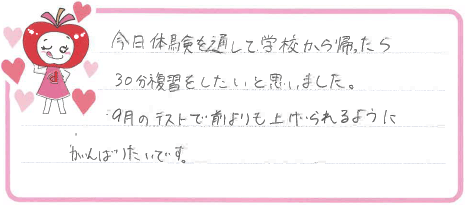 今日体験を通して学校から帰ったら
30分復習をしたいと思いました。
9月のテストで前よりも上げられるように
がんばりたいです。